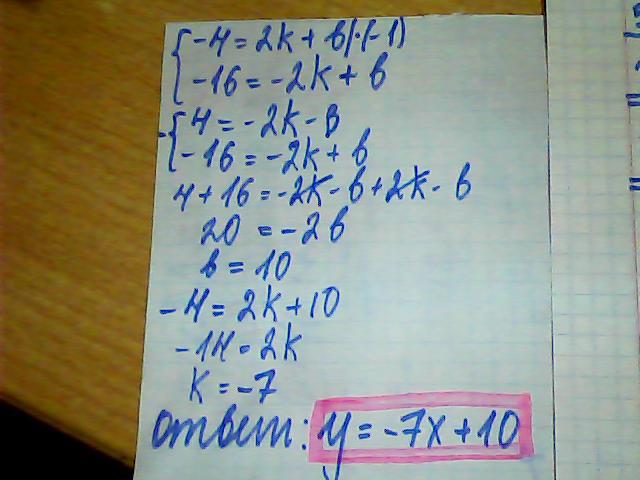 { -4 = 2k + b | · (-1)
-16 = -2k + b
- { 4 = -2k - b
-16 = -2k + b
4 + 16 = -2k - b + 2k - b
20 = -2b
b = 10
-4 = 2k + 10
-14 = 2k
k = -7
ответ: y = -7x + 10